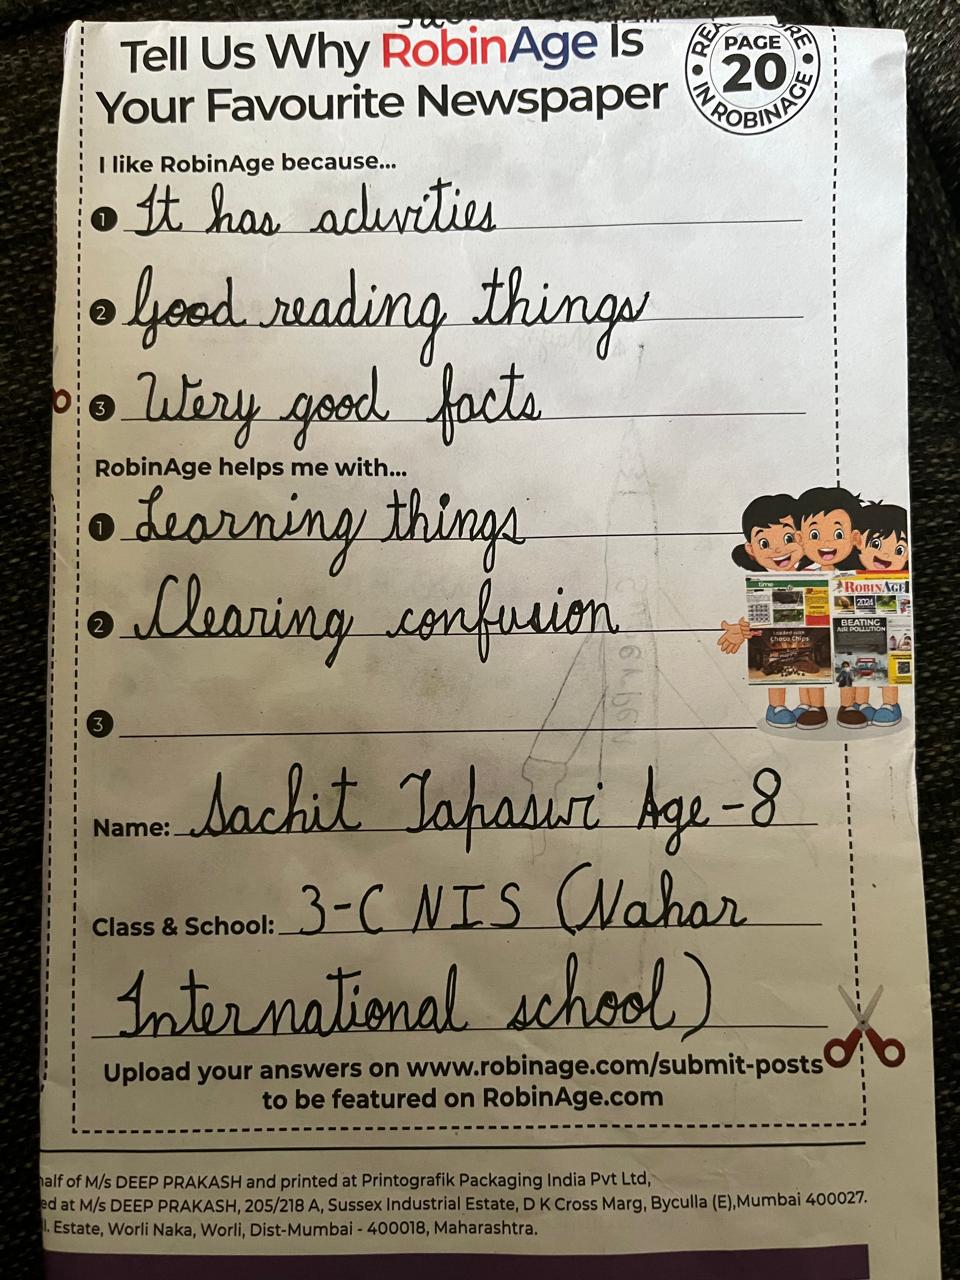 Tell Us Why RobinAge Is
Your Favourite Newspaper
READ MORE
PAGE
20
IN ROBINAGE
I like RobinAge because...
1 It has activities
2 Good reading things
3 Very good facts
RobinAge helps me with...
1 Learning things
2 Clearing confusion
3
time
ROBINAGE
2024
Loaded with
Choco Chips
BEATING
AIR POLLUTION
Name: Sachit Tapaswi Age-8
Class & School: 3-C NIS (Nahar
International school)
Upload your answers on www.robinage.com/submit-posts
to be featured on RobinAge.com
half of M/s DEEP PRAKASH and printed at Printografik Packaging India Pvt Ltd,
ed at M/s DEEP PRAKASH, 205/218 A, Sussex Industrial Estate, D K Cross Marg, Byculla (E),Mumbai 400027.
l. Estate, Worli Naka, Worli, Dist-Mumbai - 400018, Maharashtra.